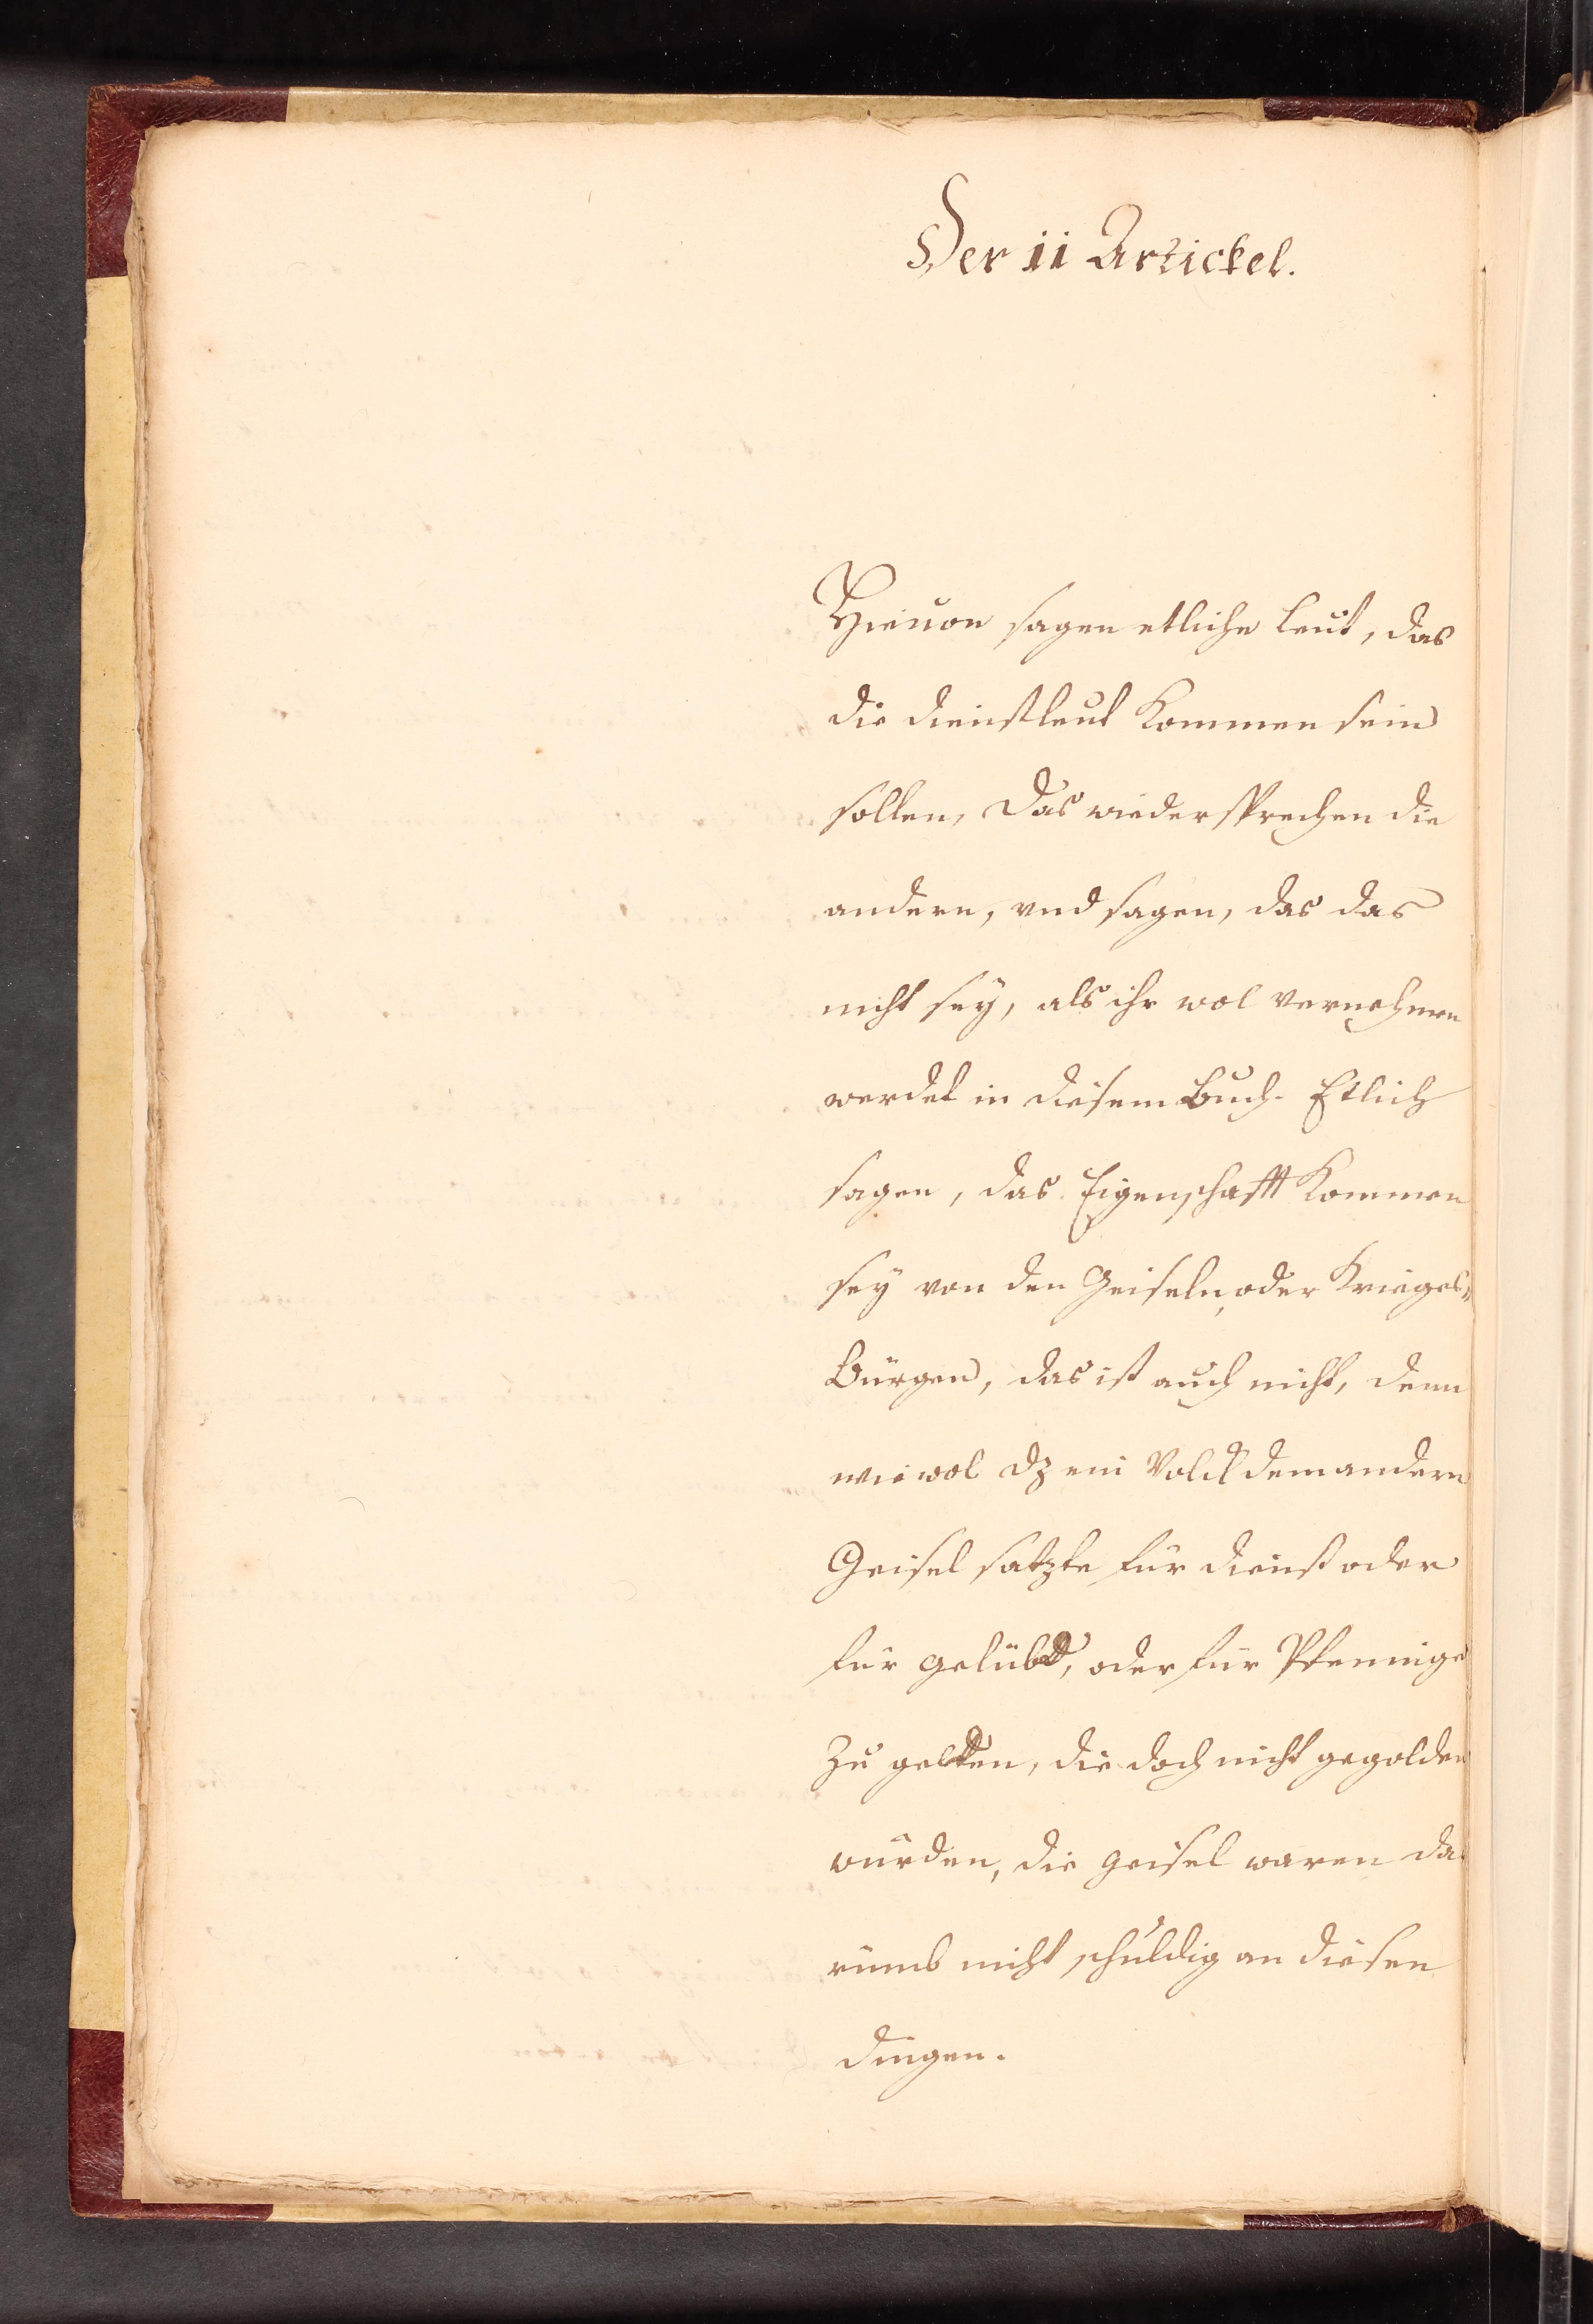 Der ii Artickel.
Hieuon sagen etliche leut, das
die dienstleut Kommen sein
sollen, Das wiedersprechen die
andern, vnd sagen, das das
nicht sey, als ihr wol vernehmen
werdet in diesem Buch. Etlich
sagen, das Eigenschafft Kommen
sey von den Geiseln, oder Krieges„
Bürgen, das ist auch nicht, denn
wie wol dz ein Volck dem andern
Geisel satzte für dienst oder
für gelübd, oder für Pfennige
Zu gelten, die doch nicht gegolden
wurden, die geisel waren da
rumb nicht schuldig an diesen
dingen.